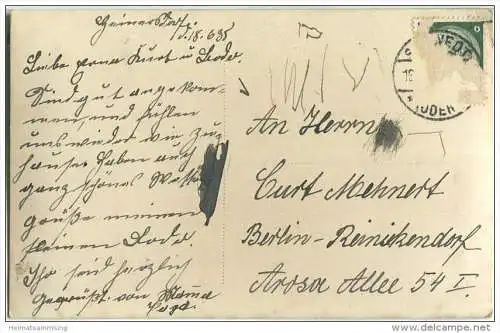 d. 18.6.35
Liebe Erna Kurt u. Bodo.
Sind gut angekom-
men, und fühlen
uns wieder wie zu-
hause. Haben auch
ganz schönes Wetter
grüße meinen
kleinen Bodo.
Ihr seid herzlich
gegrüßt von Mama
An Herrn
Curt Mehnert
Berlin-Reinickendorf
Arosa Allee 54 I.
6
(ODER)
© Heimatsammlung
www.heimatsammlung.de